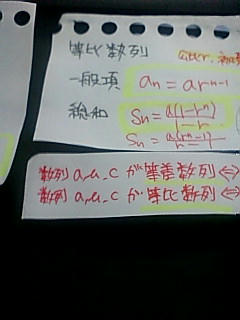 等比数列
一般項 an = arn-1
総和 Sn = a(1-rn)/1-r
Sn = a(rn-1)/r-1
数列 a,b,c が 等差数列 ⇔
数列 a,b,c が 等比数列 ⇔